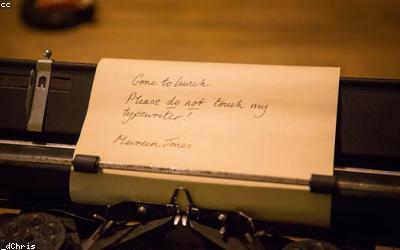 cc
Gone to lunch
Please do not touch my
typewriter!
Maureen Jones
_dChris